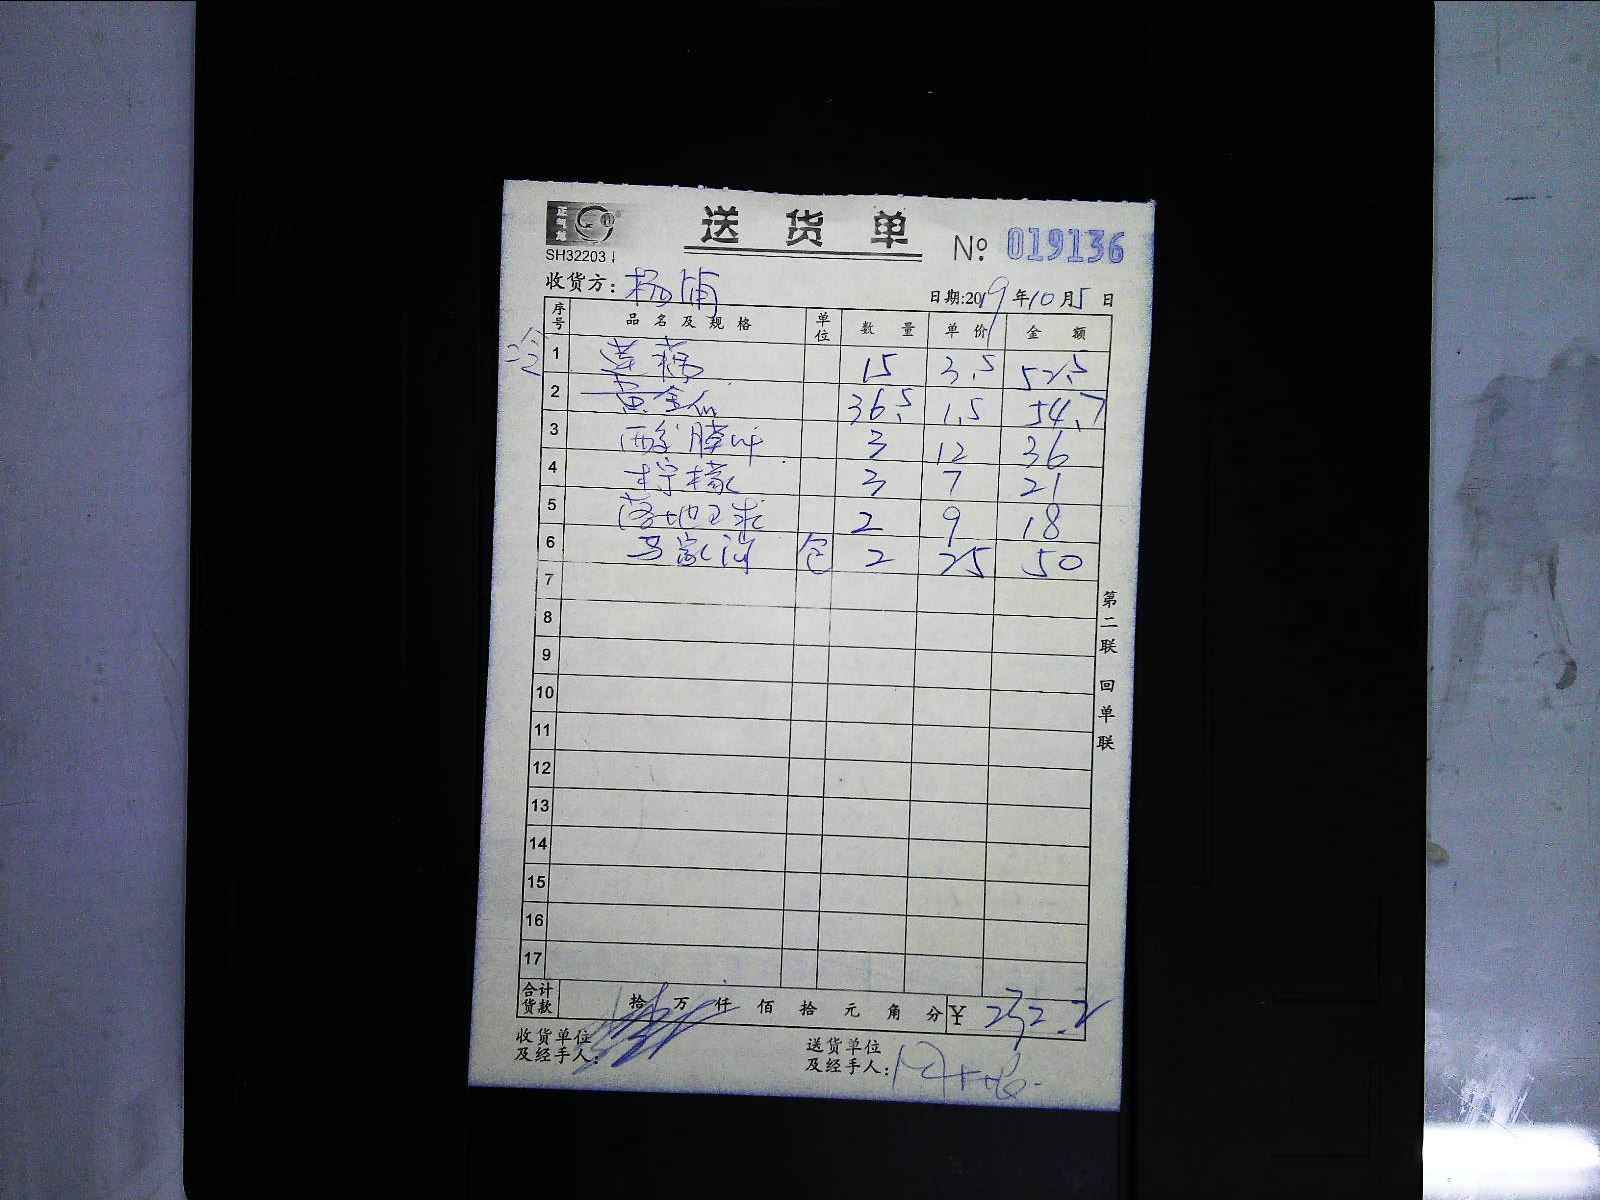 送货单
№ 019136
SH32203
收货方: 杨浦
日期:2019年10月5日
序号 品名及规格 单位 数量 单价 金额
1 莲藕 15 3.5 52.5
2 黄金瓜 36.5 1.5 54.7
3 3 12 36
4 柠檬 3 7 21
5 2 9 18
6 包 2 25 50
7
8
9
10
11
12
13
14
15
16
17
合计货款 拾 万 仟 佰 拾 元 角 分 ¥ 232.2
收货单位及经手人:
送货单位及经手人:
第二联 回单联